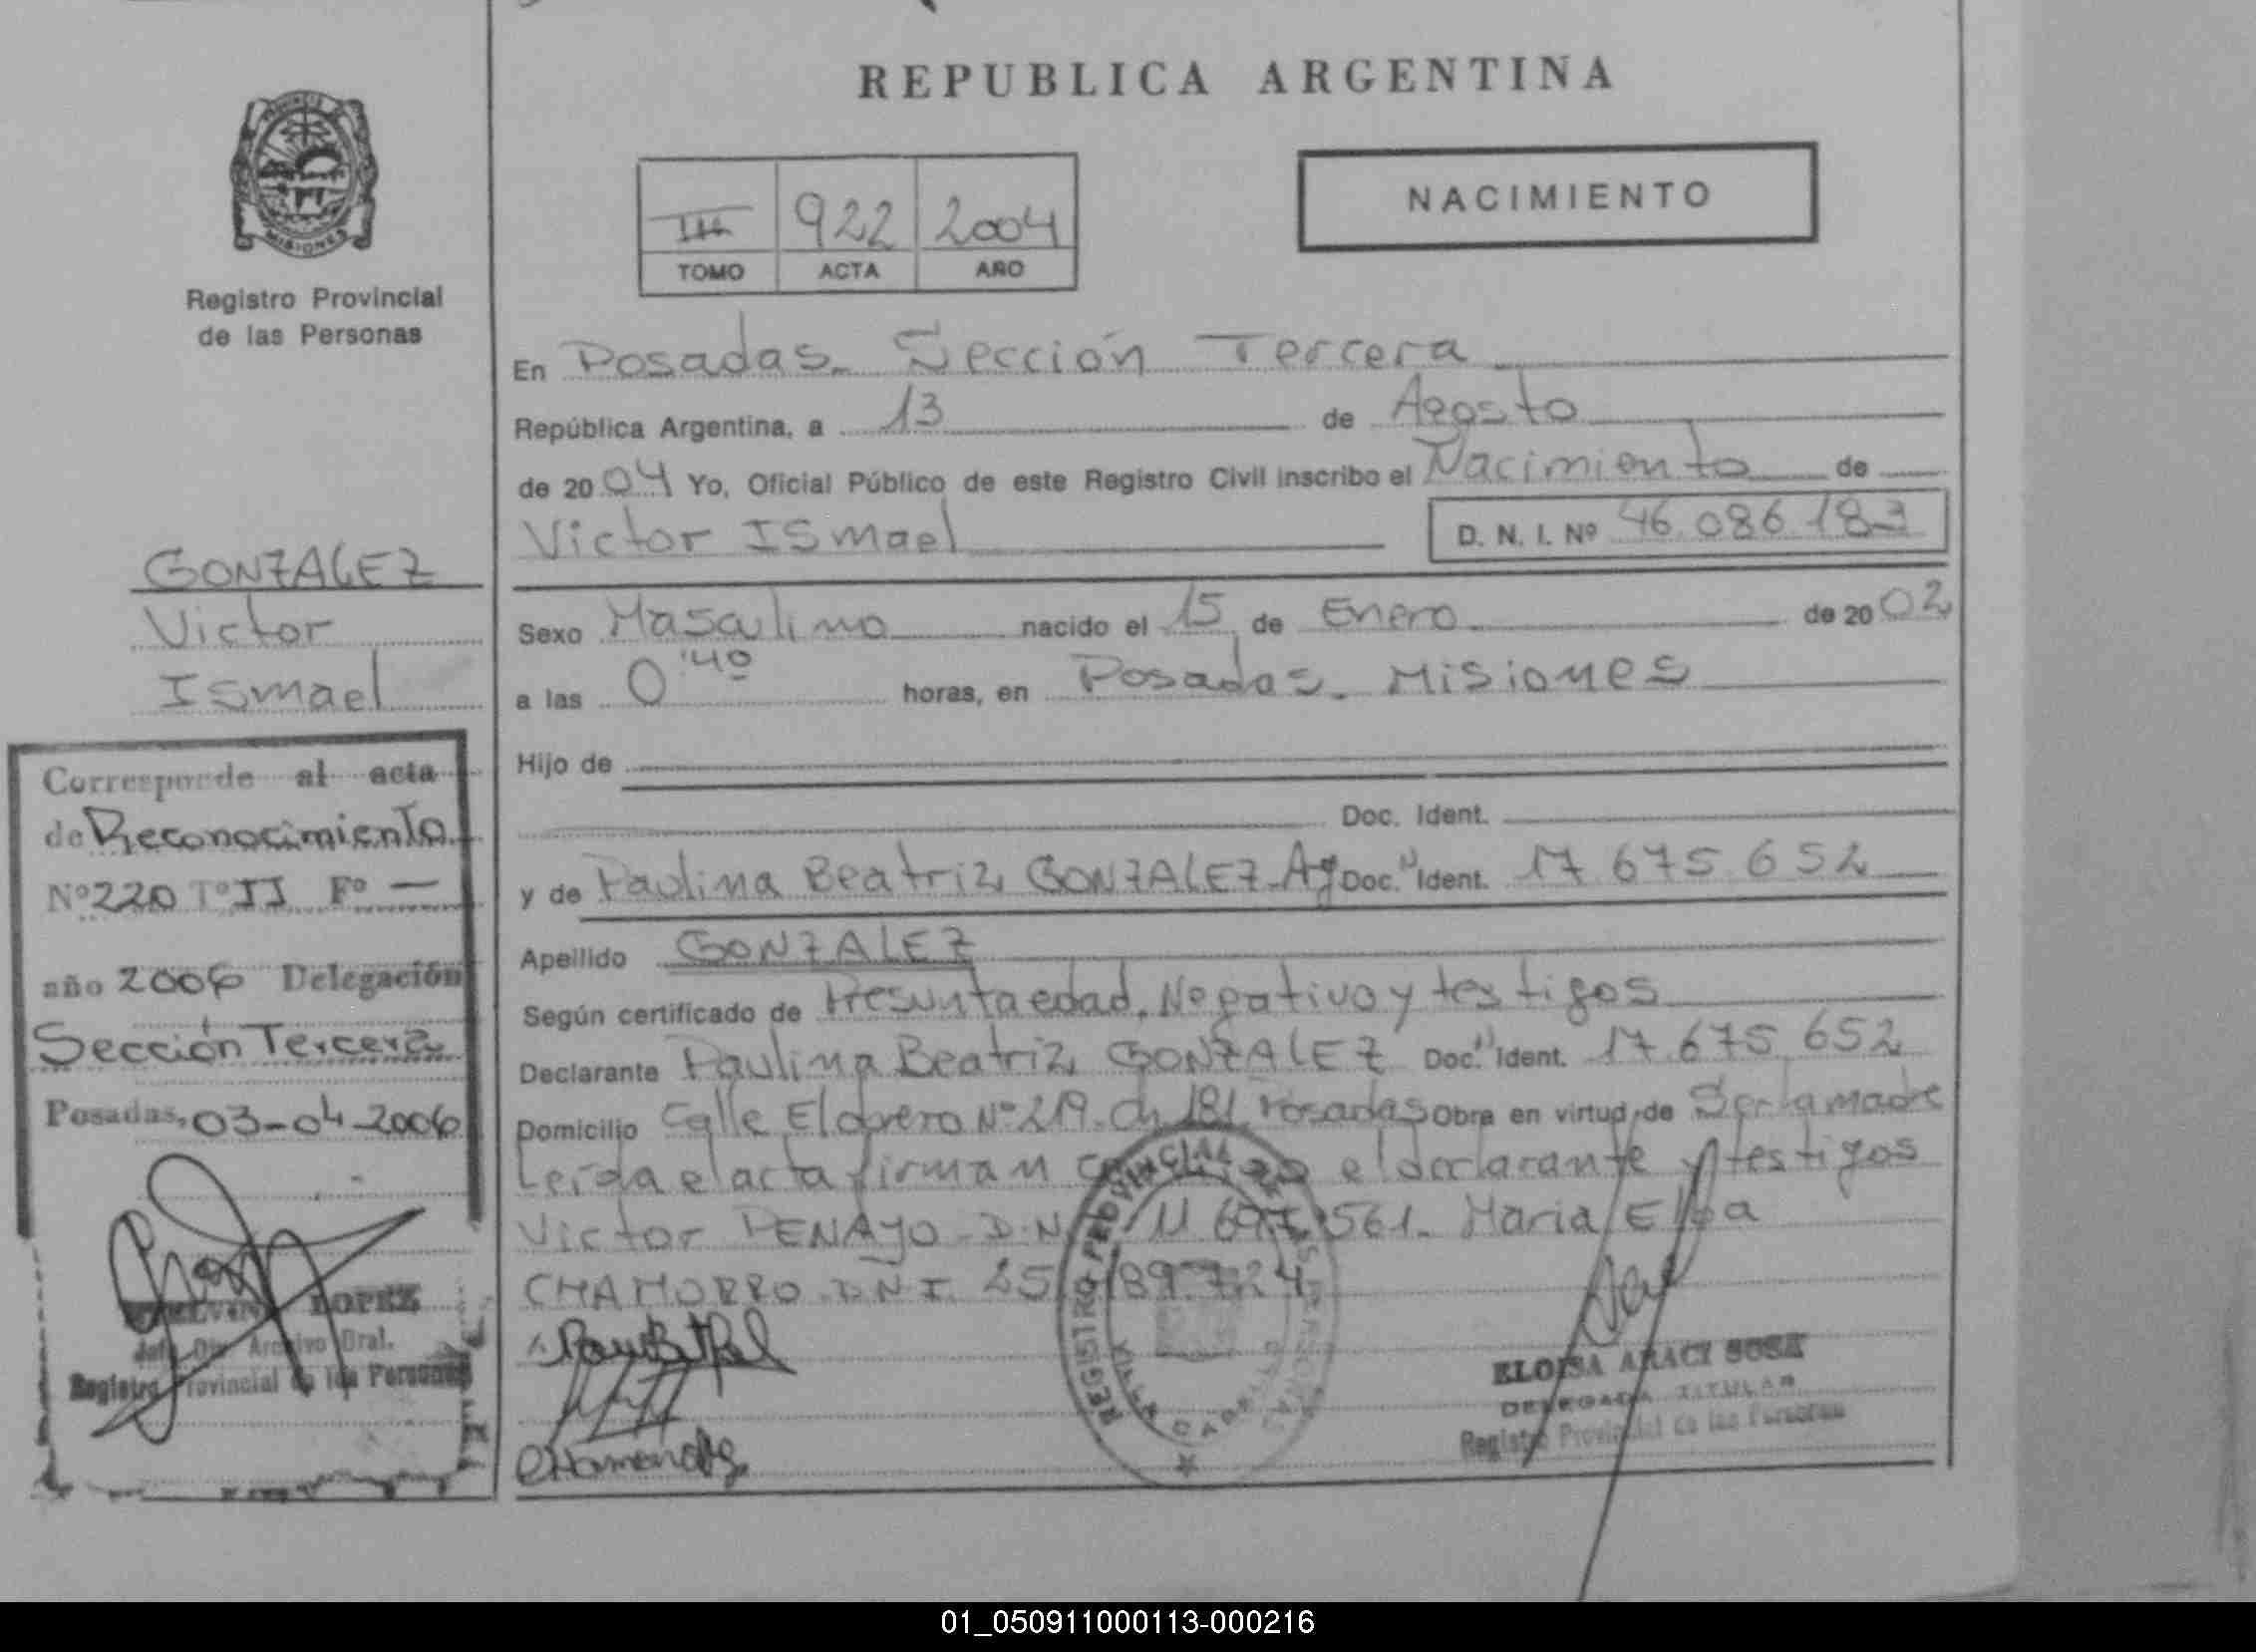 REPUBLICA ARGENTINA
MISIONES
Registro Provincial
de las Personas
III 922 2004
TOMO ACTA AÑO
NACIMIENTO
En Posadas. Sección Tercera
República Argentina, a 13 de Agosto
de 2004 Yo, Oficial Público de este Registro Civil inscribo el Nacimiento de
Victor Ismael D. N. I. Nº 46.086.183
GONZALEZ
Victor
Ismael
Sexo Masculino nacido el 15 de Enero de 2002
a las 0'40 horas, en Posadas. Misiones
Hijo de
Doc. Ident.
y de Paulina Beatriz GONZALEZ-Ag Doc. Ident. 17.675.652
Apellido GONZALEZ
Según certificado de Presunta edad, Negativo y testigos
Declarante Paulina Beatriz GONZALEZ Doc. Ident. 17.675.652
Domicilio Calle El obrero Nº 219. Ch 181. Posadas Obra en virtud de Ser la madre
Leída el acta firman el declarante y testigos
Victor PENAYO D.N.I. 11.697.561. Maria Elba
CHAMORRO D.N.I. 25.189.724
Corresponde al acta
de Reconocimiento
Nº 220 Tº II Fº —
año 2006 Delegación
Sección Tercera
Posadas, 03-04-2006
LOPEZ
Jefe Div. Archivo Gral.
Registro Provincial de las Personas
REGISTRO PROVINCIAL DE LAS PERSONAS
VILLA CABELLO
ELOISA ARACI SOSA
DELEGADA TITULAR
Registro Provincial de las Personas
01_050911000113-000216